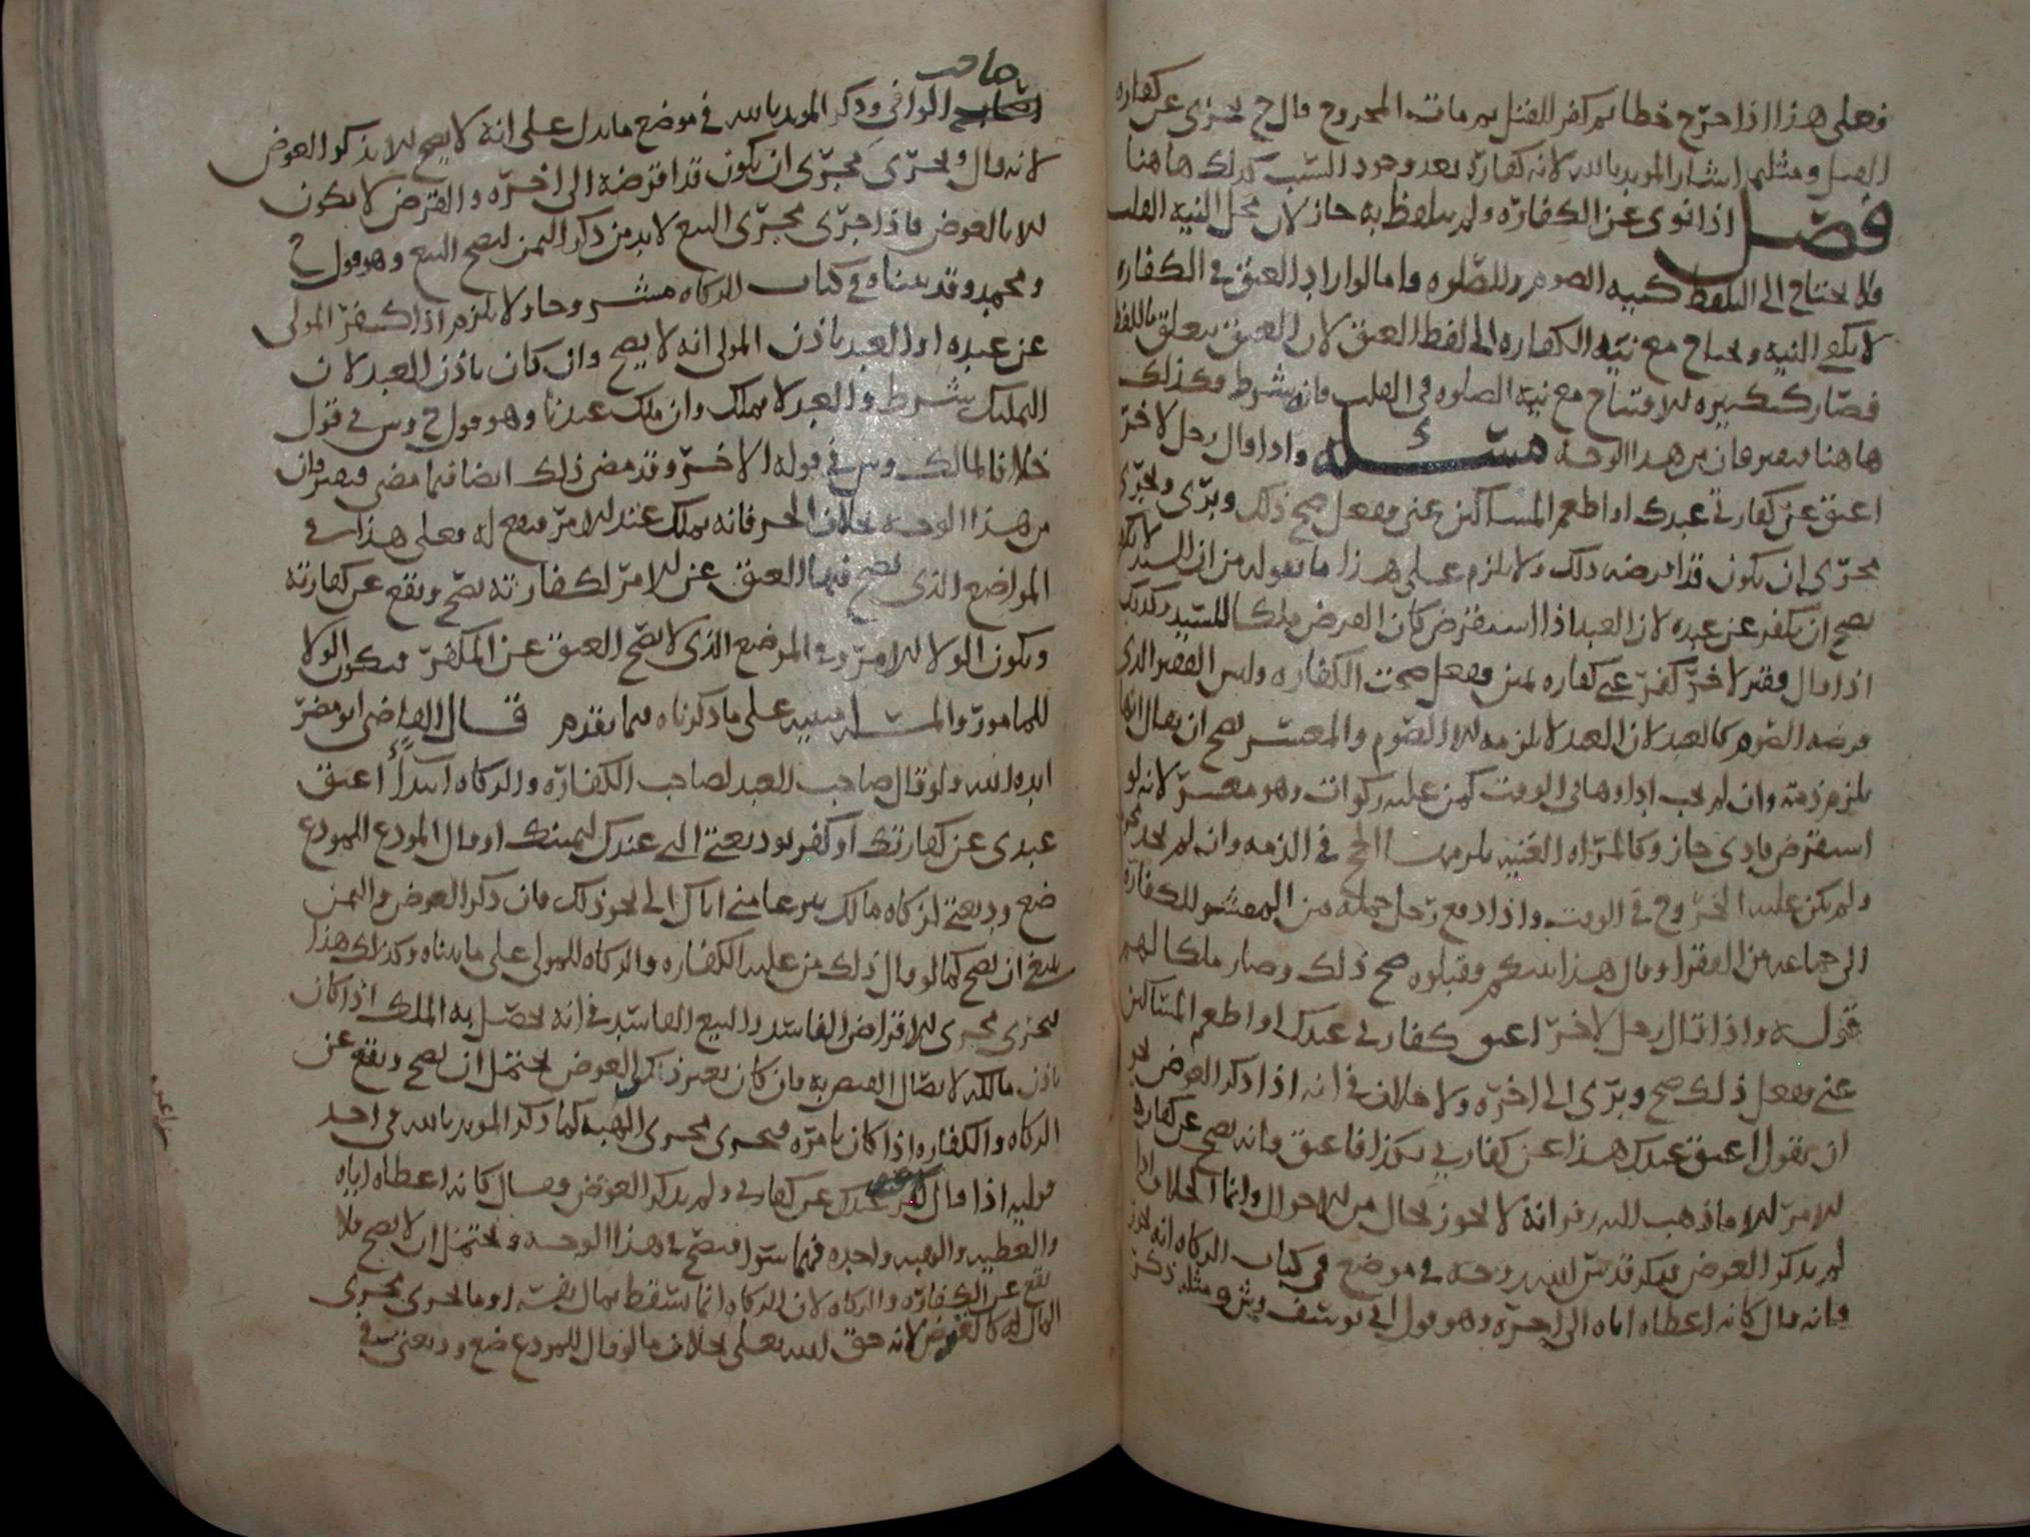 فعلى هذا اذا جرح خطا ثم كفر للقتل ثم مات المجروح قال ح يجزى عن كفارة
القتل ومثله اشار المويد بالله لانه كفارة بعد وجود السبب كذلك هاهنا
فصل اذا نوى عن الكفارة ولم يتلفظ به جاز لان محل النية القلب
ولا يحتاج الى التلفظ كنية الصوم والصلوه واما لو اراد العتق في الكفاره
لا يكفي النيه ويحتاج مع نية الكفاره الى لفظ العتق لان العتق يتعلق باللفظ
فصار كتكبيره الافتتاح مع نية الصلوه في القلب فانه شرط وكذلك
هاهنا فيفترقان من هذا الوجه مسئلة واذا قال رجل لاخر
اعتق عن كفارتي عبدك او اطعم المساكين عني ففعل صح ذلك وبرى ويجرى
مجرى ان يكون قد اقرضه ذلك ولا يلزم على هذا ما نقوله من ان السيد لا
يصح ان يكفر عن عبده لان العبد اذا استقرض كان القرض ملكا للسيد وكذلك
اذا قال فقير لاخر كفر عني كفاره يمين ففعل صحت الكفاره وليس الفقير الذي
فرضه الصوم كالعبد لان العبد لا يلزمه الا الصوم والمعسر يصح ان يقال انها
يلزم ذمته وان لم يجب اداوها في الوقت كمن عليه زكوات وهو معسر لانه لو
استقرض فادى جاز وكالمراه الغنيه يلزمها الحج في الذمه وان لم تجد محرم
ولم يكن عليها الخروج في الوقت واذا دفع رجل جمله من العشر للكفارة
الى جماعه من الفقرا وقال هذا لكم وقبلوه صح ذلك وصار ملكا لهم
قوله واذا قال رجل لاخر اعتق كفارتي عبدك او اطعم المساكين
عني ففعل ذلك صح وبرى الى اخره ولا خلاف في انه اذا ذكر العوض نحو
ان يقول اعتق عبدك هذا عن كفارتي بكذا فاعتق فانه يصح عن كفارة
الامر الا ما ذهب اليه زفر انه لا يجوز بحال من الاحوال وانما الخلاف اذا
لم يذكر العوض فذكر قدس الله روحه في موضع في كتاب الزكاه انه يجوز
فانه قال كانه اعطاه اياه الى اخره وهو قول ابي يوسف وش ومثله ذكر
صاحب
الوافي وذكر المويد بالله في موضع ما يدل على انه لا يصح الا بذكر العوض
لانه قال ويجرى مجرى ان يكون قد اقرضه الى اخره والقرض لا يكون
الا بالعوض فاذا جرى مجرى البيع لابد من ذكر الثمن ليصح البيع وهو قول ح
ومحمد وقد بيناه في كتاب الزكاه مشروحا ولا يلزم اذا كفر المولى
عن عبده او العبد باذن المولى انه لا يصح وان كان باذن العبد لان
التمليك شرط والعبد لا يملك وان ملك عندنا وهو قول ح وس في قول
خلافا لمالك وس في قوله الاخر وقد مضى ذلك ايضا فيما مضى فيفترقان
من هذا الوجه بخلاف الحر فانه يملك عند الامر فيصح له فعلى هذا في
المواضع الذي يصح فيها العتق عن الامر لكفارته يصح ويقع عن كفارته
ويكون الولا للامر وفي الموضع الذي لا يصح العتق عن المكفر فيكون الولا
للمامور والمسئلة مبنيه على ما ذكرناه فيما تقدم قال القاضي ابو مضر
ايده الله ولو قال صاحب العبد لصاحب الكفارة والزكاه ابتداً اعتق
عبدي عن كفارتك او كفر بوديعتي التي عندك ليمينك او قال المودع للمودع
ضع وديعتي لزكاه مالك تبرعا مني اياك الى نحو ذلك فان ذكر العوض والثمن
ينبغي ان يصح كما لو قال ذلك من عليه الكفاره والزكاه للمولى على ما بيناه وكذلك هذا
يجرى مجرى الاقتراض الفاسد والبيع الفاسد في انه يحصل به الملك اذا كان
باذن مالكه لاتصال القبض به فان كان بغير ذكر العوض يحتمل ان يصح ويقع عن
الزكاه والكفاره اذا كان بامره فيجرى مجرى الهبه كما ذكر المويد بالله في احد
قوليه اذا قال اعتق عبدك عن كفارتي ولم يذكر العوض وقال كانه اعطاه اياه
والعطيه والهبه واحده فهما سوا فيصح في هذا الوجه ويحتمل ان لا يصح فلا
يقع عن الكفارة والزكاه لان الزكاه انما تسقط بمال نفسه او ما يجرى مجرى
المال له كالقرض لانه حق لله تعلى بخلاف ما لو قال للمودع ضع وديعتي في